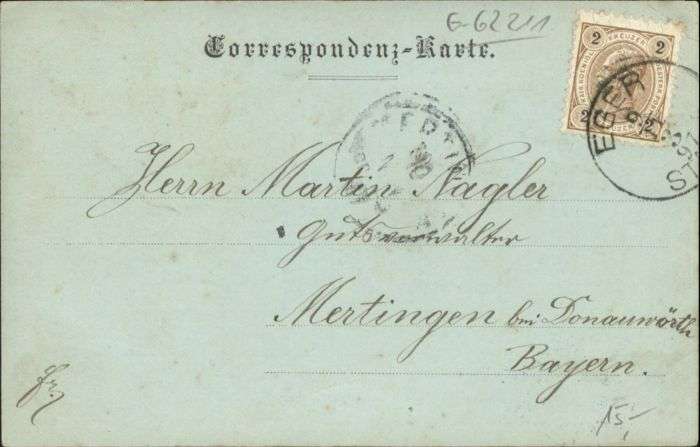 E-62211
Correspondenz-Karte.
2 KREUZER 2
2 2
EGER
MERTIN
Herrn Martin Nagler
Gutsverwalter
Mertingen bei Donauwörth
Bayern.
fr.
15,-